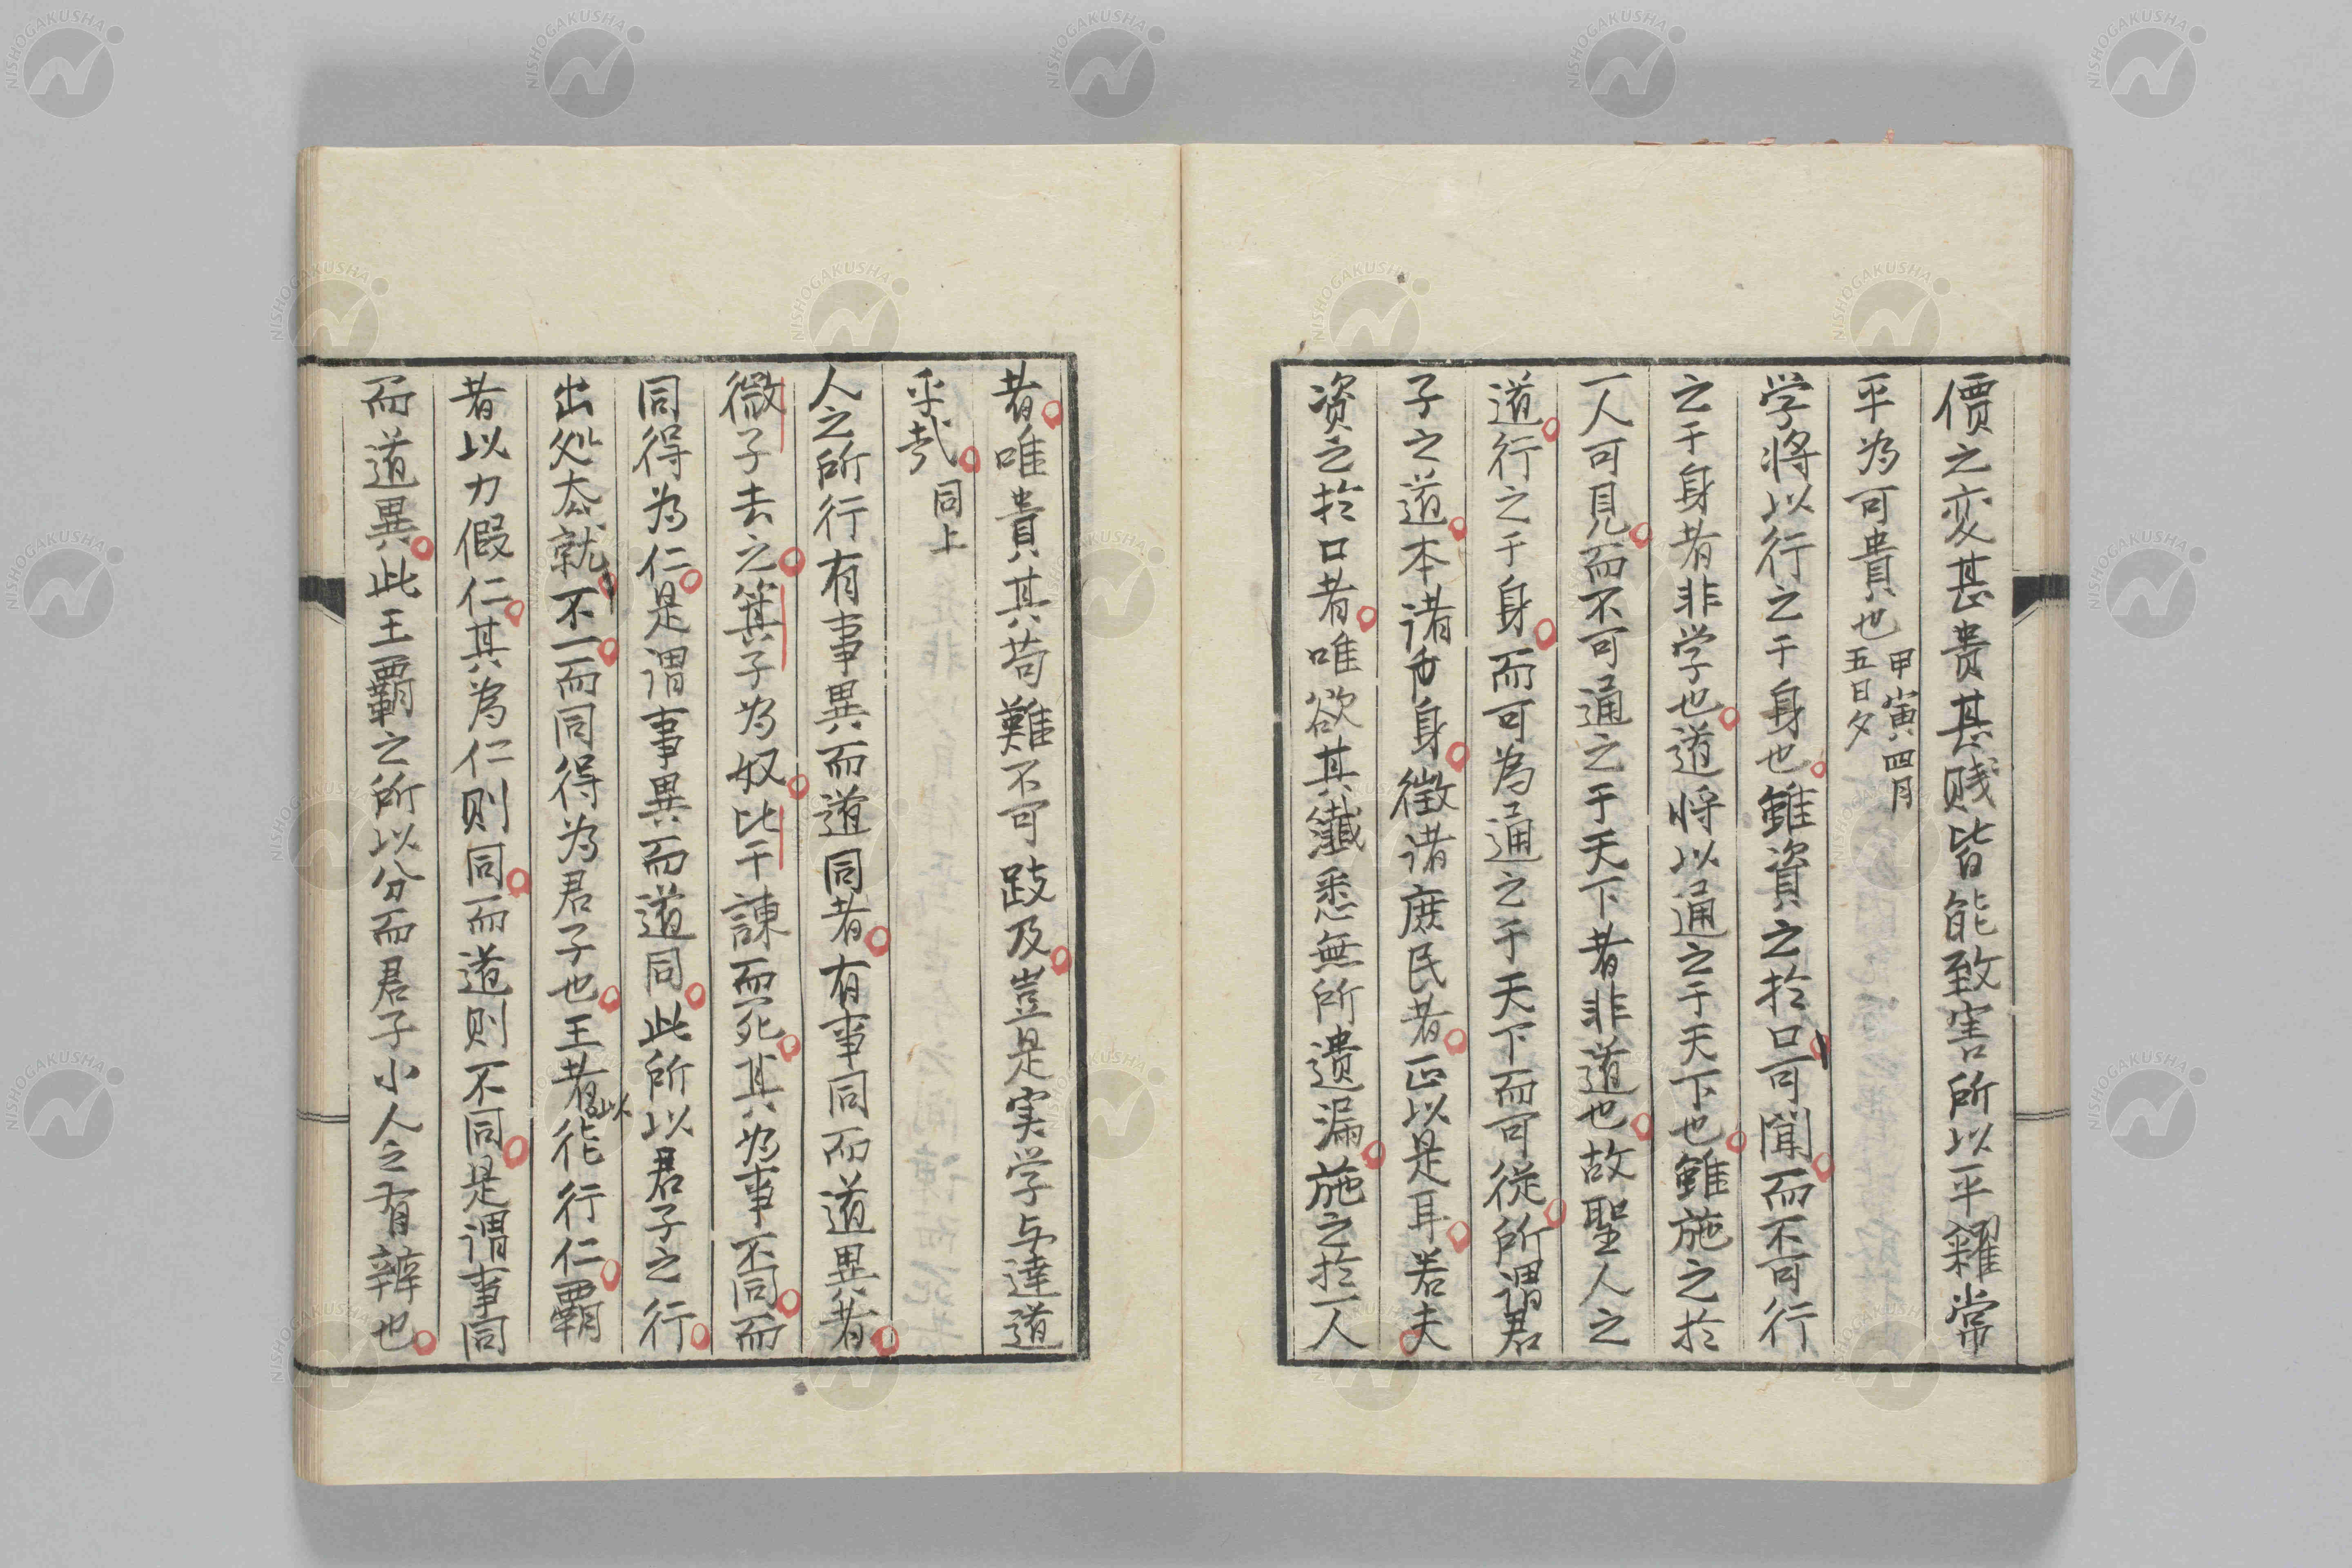 價之変甚貴甚賤皆能致害所以平糶常
平為可貴也甲寅四月五日夕
学將以行之于身也雖資之於口可聞而不可行
之于身者非学也道将以通之于天下也雖施之於
一人可見而不可通之于天下者非道也故聖人之
道行之于身而可為通之于天下而可從所謂君
子之道本諸身徴諸庶民者正以是耳若夫
資之於口者唯欲其纎悉無所遺漏施之於一人
者唯貴其苟難不可跂及豈是実学与達道
乎哉同上
人之所行有事異而道同者有事同而道異者
微子去之箕子為奴比干諫而死其為事不同而
同得為仁是謂事異而道同此所以君子之行
出処去就不一而同得為君子也王者以徳行仁覇
者以力假仁其為仁則同而道則不同是謂事同
而道異此王覇之所以分而君子小人之有辨也
NISHOGAKUSHA